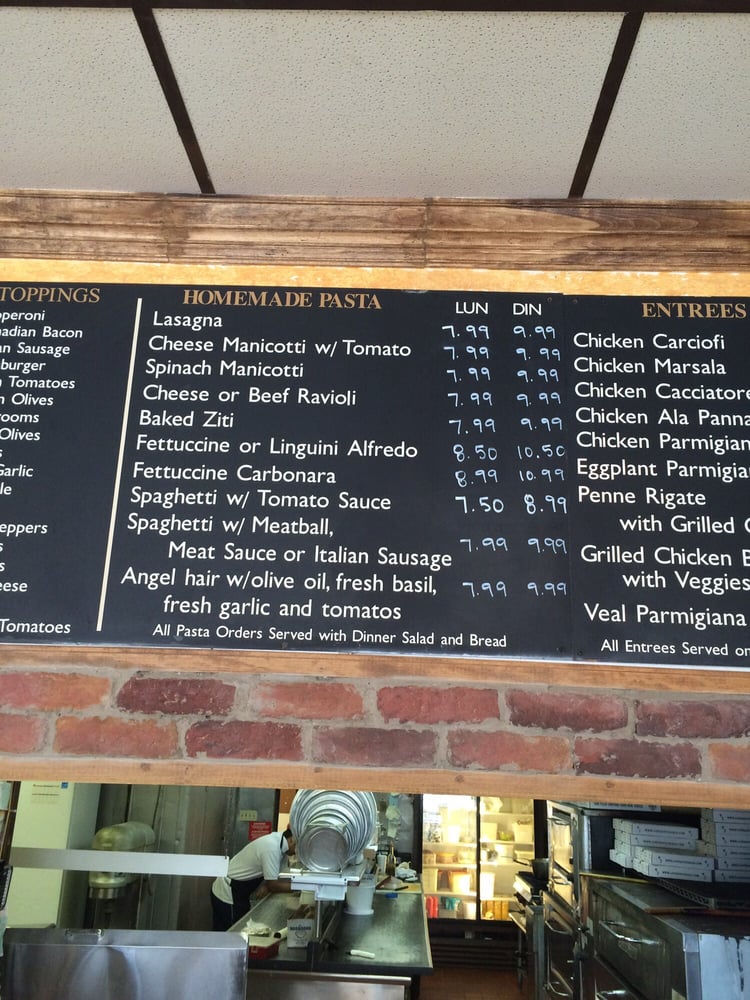 TOPPINGS
adian Bacon
Sausage
burger
Tomatoes
Olives
ooms
Olives
Garlic
eppers
eese
Tomatoes
HOMEMADE PASTA LUN DIN
Lasagna 7.99 9.99
Cheese Manicotti w/ Tomato 7.99 9.99
Spinach Manicotti 7.99 9.99
Cheese or Beef Ravioli 7.99 9.99
Baked Ziti 7.99 9.99
Fettuccine or Linguini Alfredo 8.50 10.50
Fettuccine Carbonara 8.99 10.99
Spaghetti w/ Tomato Sauce 7.50 8.99
Spaghetti w/ Meatball,
Meat Sauce or Italian Sausage 7.99 9.99
Angel hair w/olive oil, fresh basil, 7.99 9.99
fresh garlic and tomatos
All Pasta Orders Served with Dinner Salad and Bread
ENTREES
Chicken Carciofi
Chicken Marsala
Chicken Cacciatore
Chicken Ala Panna
Chicken Parmigian
Eggplant Parmigia
Penne Rigate
with Grilled
Grilled Chicken
with Veggies
Veal Parmigiana
All Entrees Served